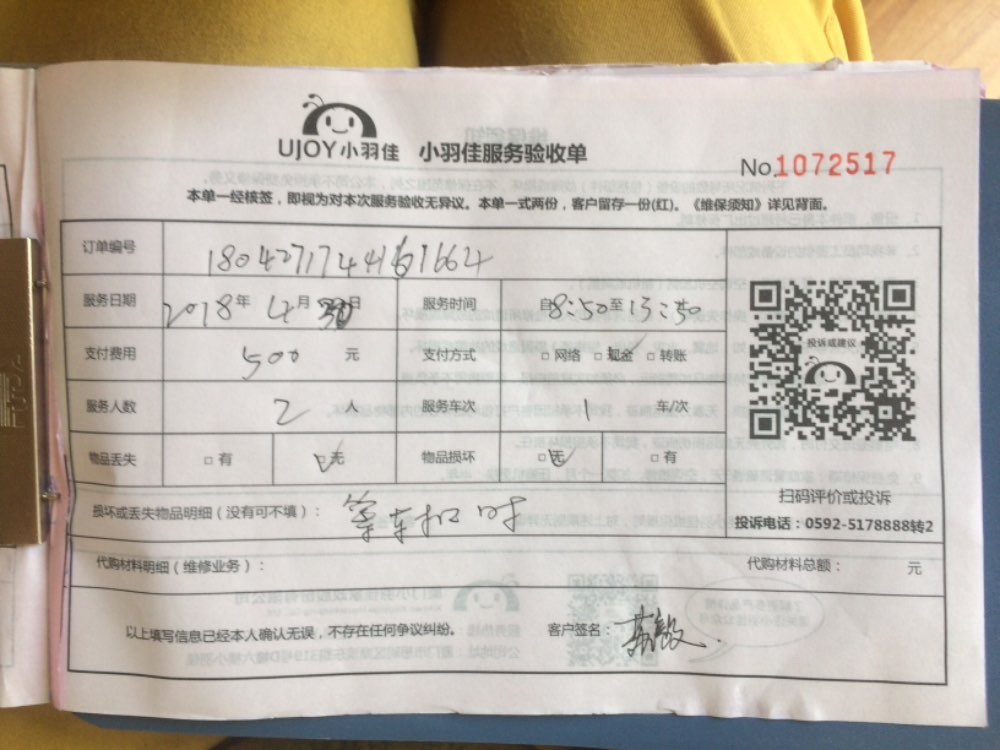 UJOY小羽佳 小羽佳服务验收单
No.1072517
本单一经核签，即视为对本次服务验收无异议。本单一式两份，客户留存一份(红)。《维保须知》详见背面。
订单编号
服务日期 2018年 4月 30日 服务时间 自8:50至13:50
支付费用 500 元 支付方式 □网络 □现金 □转账
服务人数 2 人 服务车次 1 车/次
物品丢失 □有 □无 物品损坏 □无 □有
投诉或建议
扫码评价或投诉
投诉电话：0592-5178888转2
损坏或丢失物品明细（没有可不填）：
代购材料明细（维修业务）： 代购材料总额： 元
以上填写信息已经本人确认无误，不存在任何争议纠纷。 客户签名：